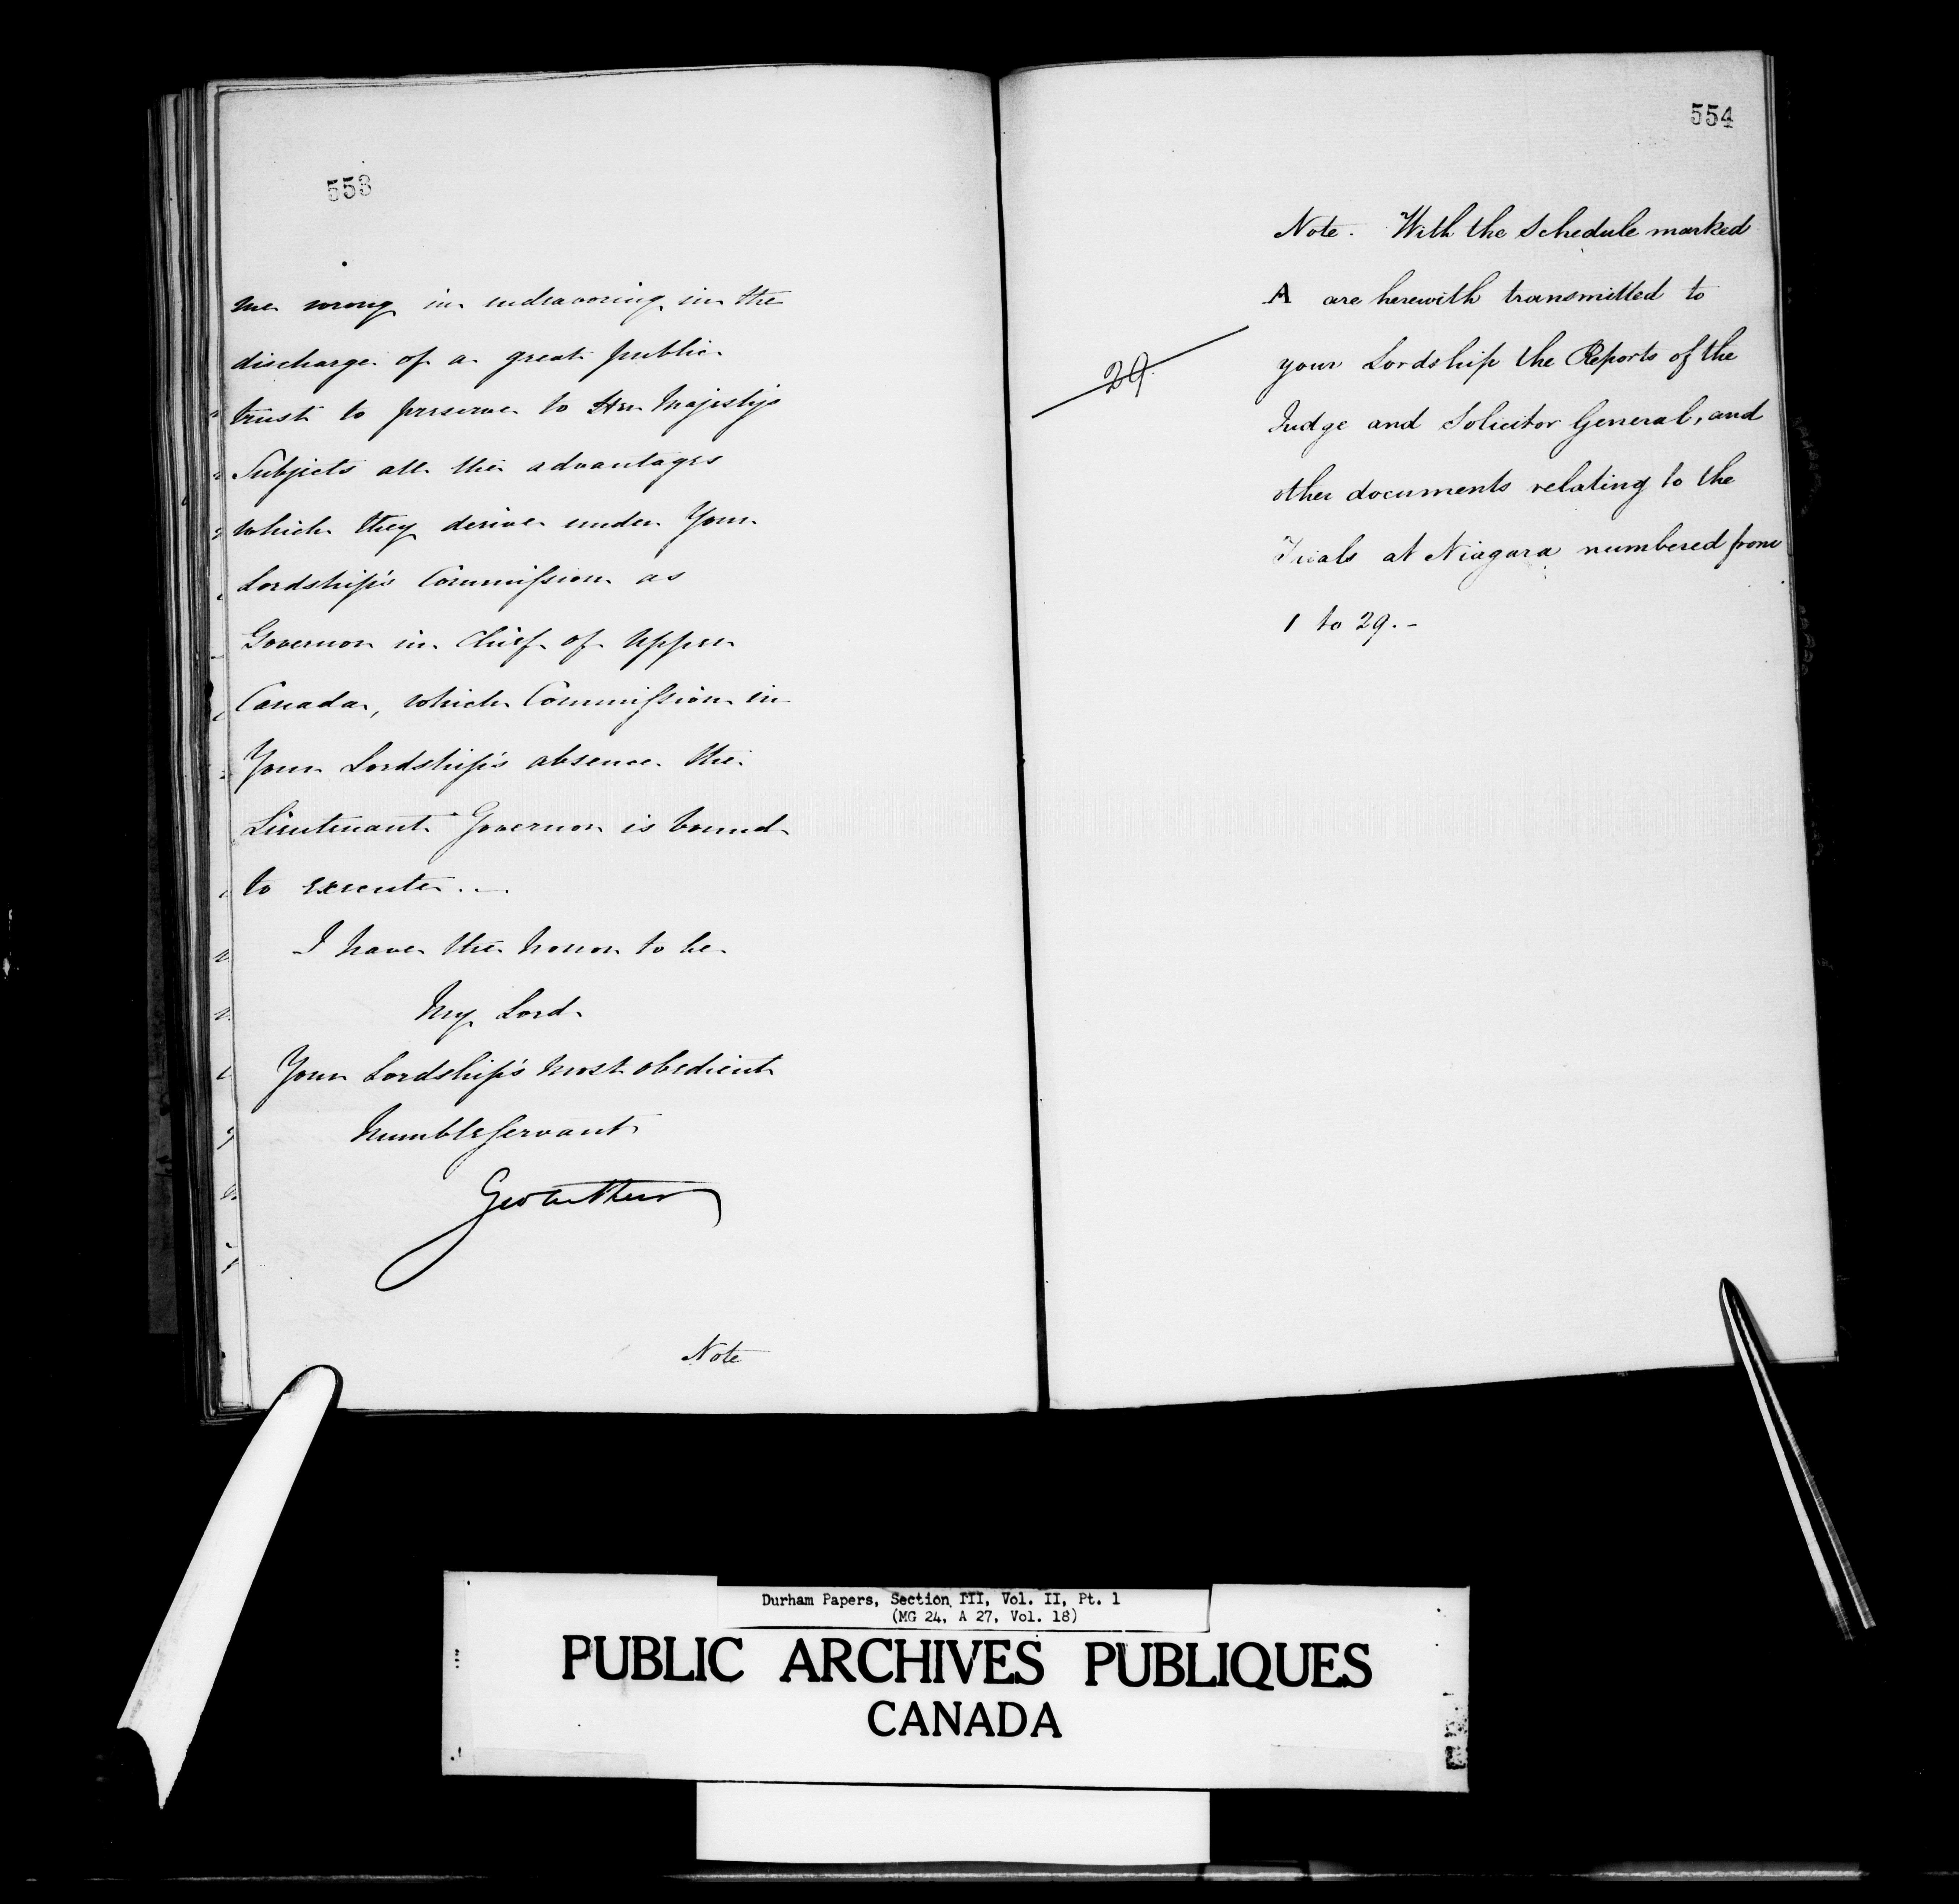 553
me wrong in endeavoring in the
discharge of a great public
trust to preserve to Her Majesty's
Subjects all the advantages
which they derive under Your
Lordship's Commission as
Governor in Chief of Upper
Canada, which Commission in
Your Lordship's absence the
Lieutenant Governor is bound
to execute.—
I have the honor to be
My Lord
Your Lordship's most obedient
humble servant
Geo Arthur
Note
554
Note. With the Schedule marked
A are herewith transmitted to
your Lordship the Reports of the
Judge and Solicitor General, and
other documents relating to the
Trials at Niagara numbered from
1 to 29.-
29
Durham Papers, Section III, Vol. II, Pt. 1
(MG 24, A 27, Vol. 18)
PUBLIC ARCHIVES PUBLIQUES
CANADA